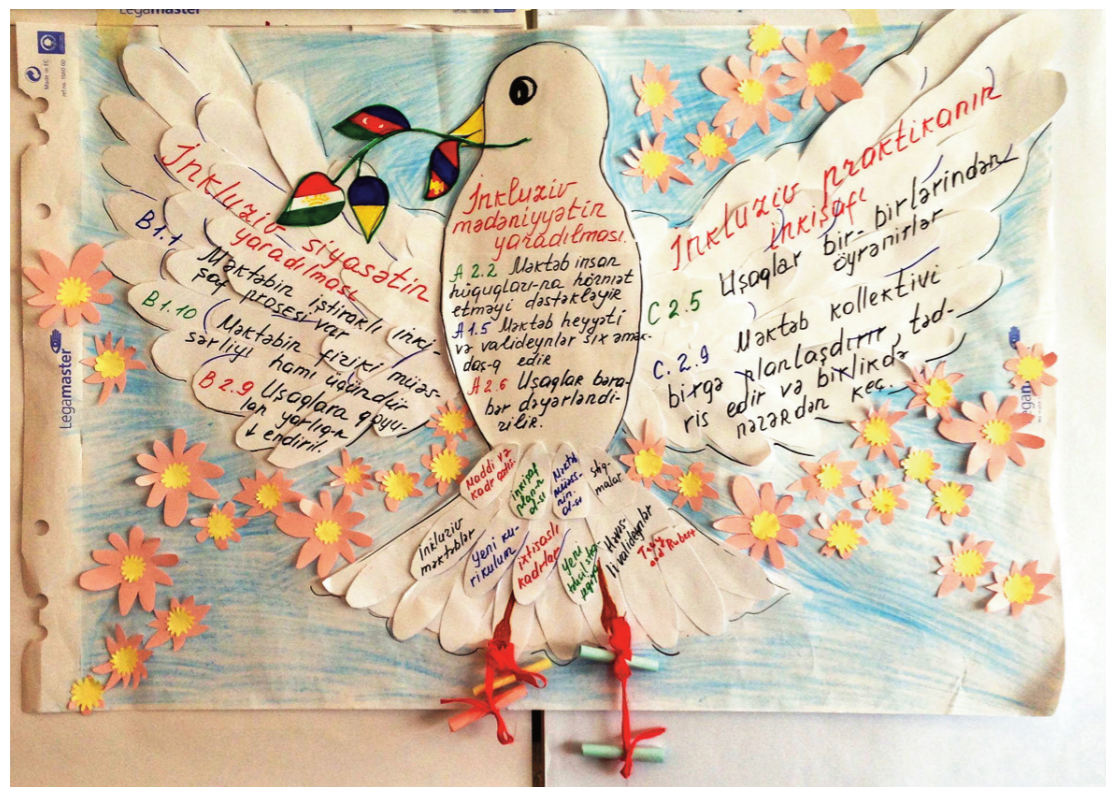 Legamaster
Made in EC
Legamaster
İnkluziv siyasətin
yaradılması
B1.1 Məktəbin iştiraklı inki-
şaf prosesi var
B1.10 Məktəbin fiziki müəs-
sərliyi hamı üçündür
B2.9 Uşaqlara qoyu-
lan yarlıq-r
↓ endiril.
İnkluziv
mədəniyyətin
yaradılması.
A 2.2 Məktəb insan
hüquqları-na hörmət
etməyi dəstəkləyir
A 1.5 Məktəb heyyəti
və valideynlər sıx əmək-
daş-q edir
A 2.6 Uşaqlar bəra-
bər dəyərləndi-
rilir.
İnkluziv praktikanın
inkişafı
C 2.5 Uşaqlar bir-birlərindən
öyrənirlər
C.2.9 Məktəb kollektivi
birgə planlaşdırır, təd-
ris edir və birlikdə
nəzərdən keç.
Maddi və
inkişaf
plan-n
əl-si
Məktəb
İnkluziv
məktəblər
Yeni ku-
rikulum
ixtisaslı
kadrlar
Yeni
Həvəs-
li valideynlər